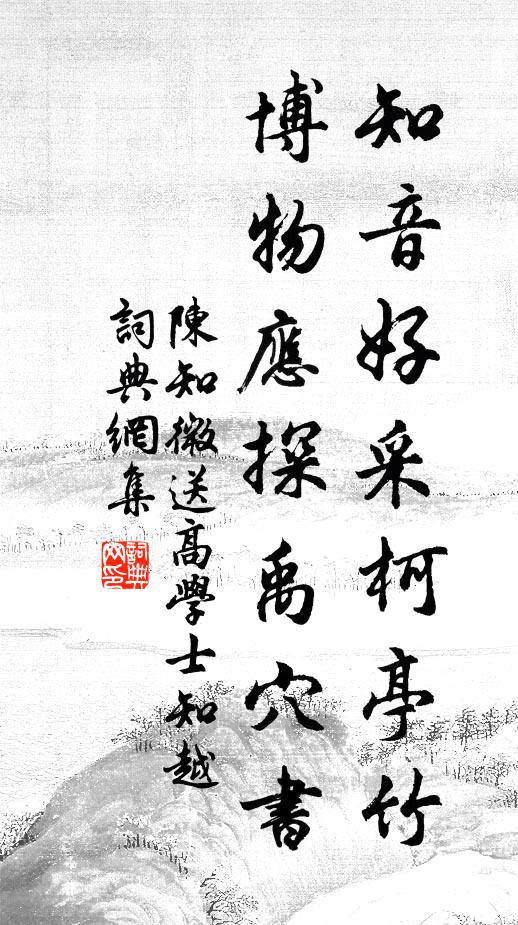 知音好采柯亭竹
博物應探禹穴書
陳知微送高學士知越
詞典網集
詞典网印